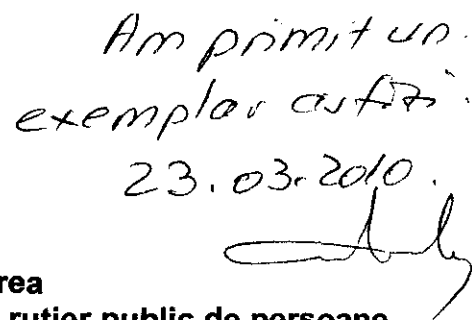 Am primit un
exemplar astăzi.
23.03.2010.
rea
rutier public de persoane